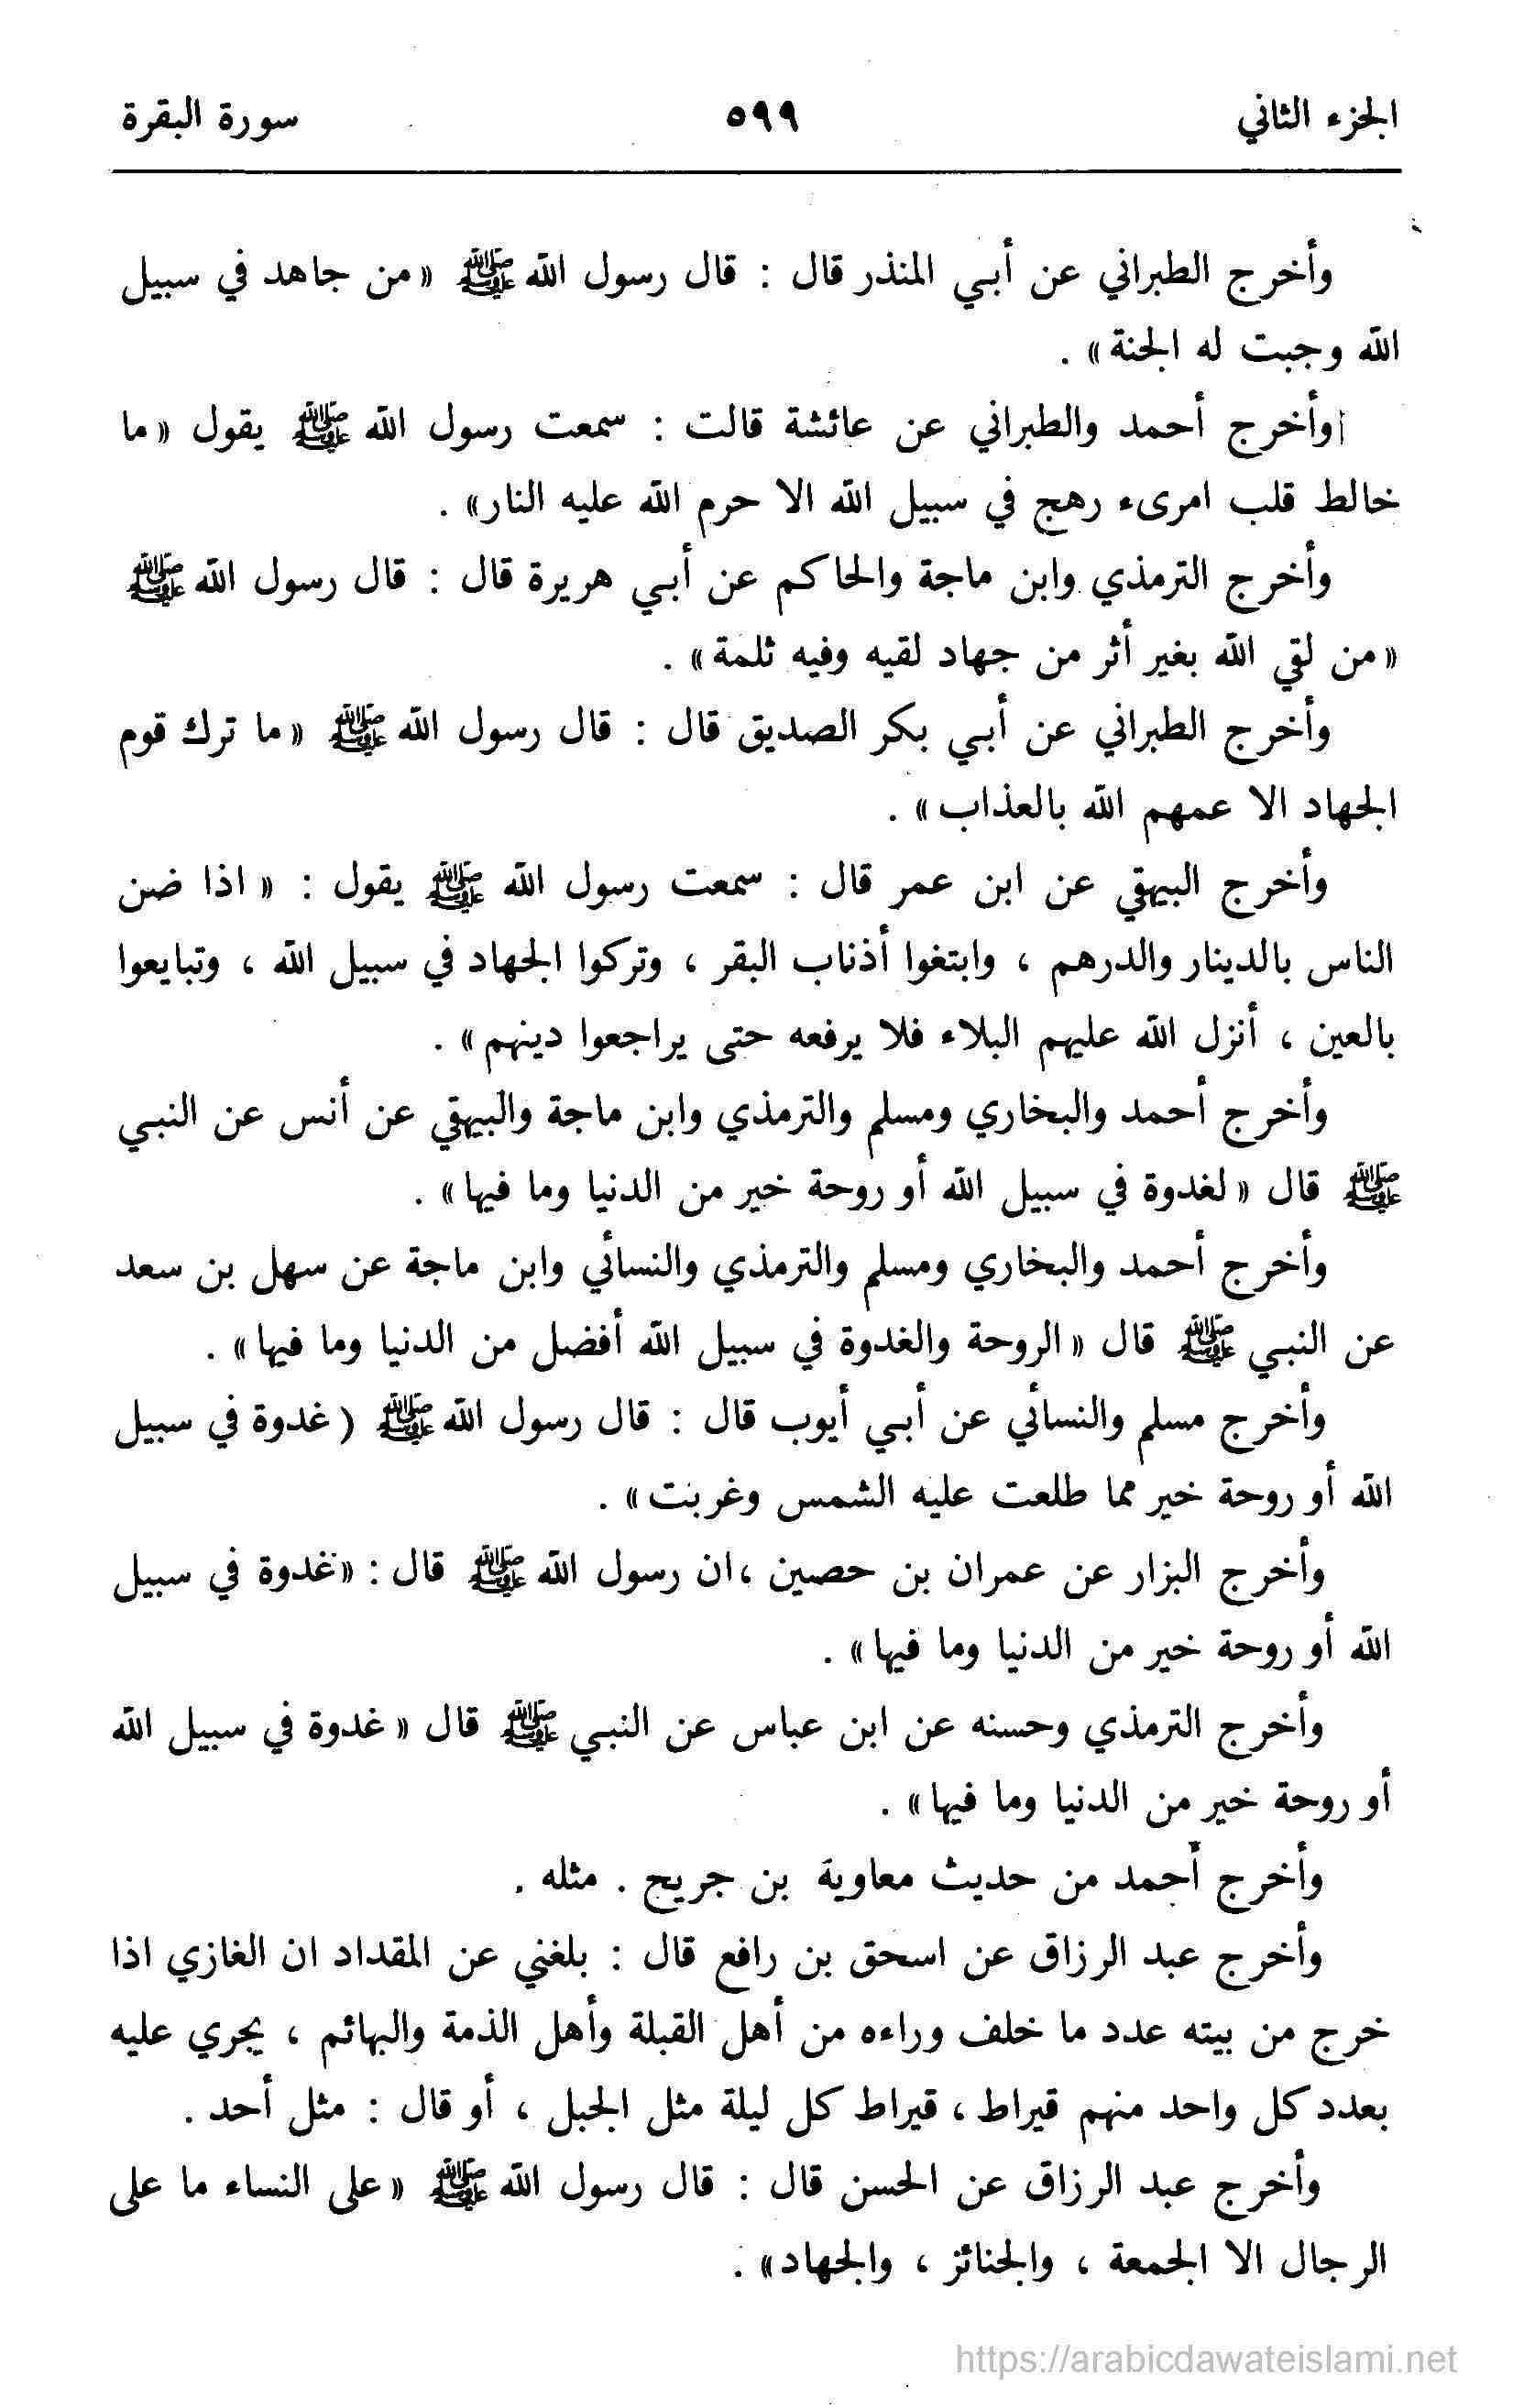 الجزء الثاني ٥٩٩ سورة البقرة
وأخرج الطبراني عن أبي المنذر قال : قال رسول الله ﷺ «من جاهد في سبيل
الله وجبت له الجنة» .
وأخرج أحمد والطبراني عن عائشة قالت : سمعت رسول الله ﷺ يقول «ما
خالط قلب امرىء رهج في سبيل الله الا حرم الله عليه النار» .
وأخرج الترمذي وابن ماجة والحاكم عن أبي هريرة قال : قال رسول الله ﷺ
«من لقي الله بغير أثر من جهاد لقيه وفيه ثلمة» .
وأخرج الطبراني عن أبي بكر الصديق قال : قال رسول الله ﷺ «ما ترك قوم
الجهاد الا عمهم الله بالعذاب» .
وأخرج البيهقي عن ابن عمر قال : سمعت رسول الله ﷺ يقول : «اذا ضن
الناس بالدينار والدرهم ، وابتغوا أذناب البقر ، وتركوا الجهاد في سبيل الله ، وتبايعوا
بالعين ، أنزل الله عليهم البلاء فلا يرفعه حتى يراجعوا دينهم» .
وأخرج أحمد والبخاري ومسلم والترمذي وابن ماجة والبيهقي عن أنس عن النبي
ﷺ قال «لغدوة في سبيل الله أو روحة خير من الدنيا وما فيها» .
وأخرج أحمد والبخاري ومسلم والترمذي والنسائي وابن ماجة عن سهل بن سعد
عن النبي ﷺ قال «الروحة والغدوة في سبيل الله أفضل من الدنيا وما فيها» .
وأخرج مسلم والنسائي عن أبي أيوب قال : قال رسول الله ﷺ (غدوة في سبيل
الله أو روحة خير مما طلعت عليه الشمس وغربت» .
وأخرج البزار عن عمران بن حصين ،ان رسول الله ﷺ قال : «غدوة في سبيل
الله أو روحة خير من الدنيا وما فيها» .
وأخرج الترمذي وحسنه عن ابن عباس عن النبي ﷺ قال «غدوة في سبيل الله
أو روحة خير من الدنيا وما فيها» .
وأخرج أحمد من حديث معاوية بن جريح . مثله .
وأخرج عبد الرزاق عن اسحق بن رافع قال : بلغني عن المقداد ان الغازي اذا
خرج من بيته عدد ما خلف وراءه من أهل القبلة وأهل الذمة والبهائم ، يجري عليه
بعدد كل واحد منهم قيراط ، قيراط كل ليلة مثل الجبل ، أو قال : مثل أحد .
وأخرج عبد الرزاق عن الحسن قال : قال رسول الله ﷺ «على النساء ما على
الرجال الا الجمعة ، والجنائز ، والجهاد» .
https://arabicdawateislami.net